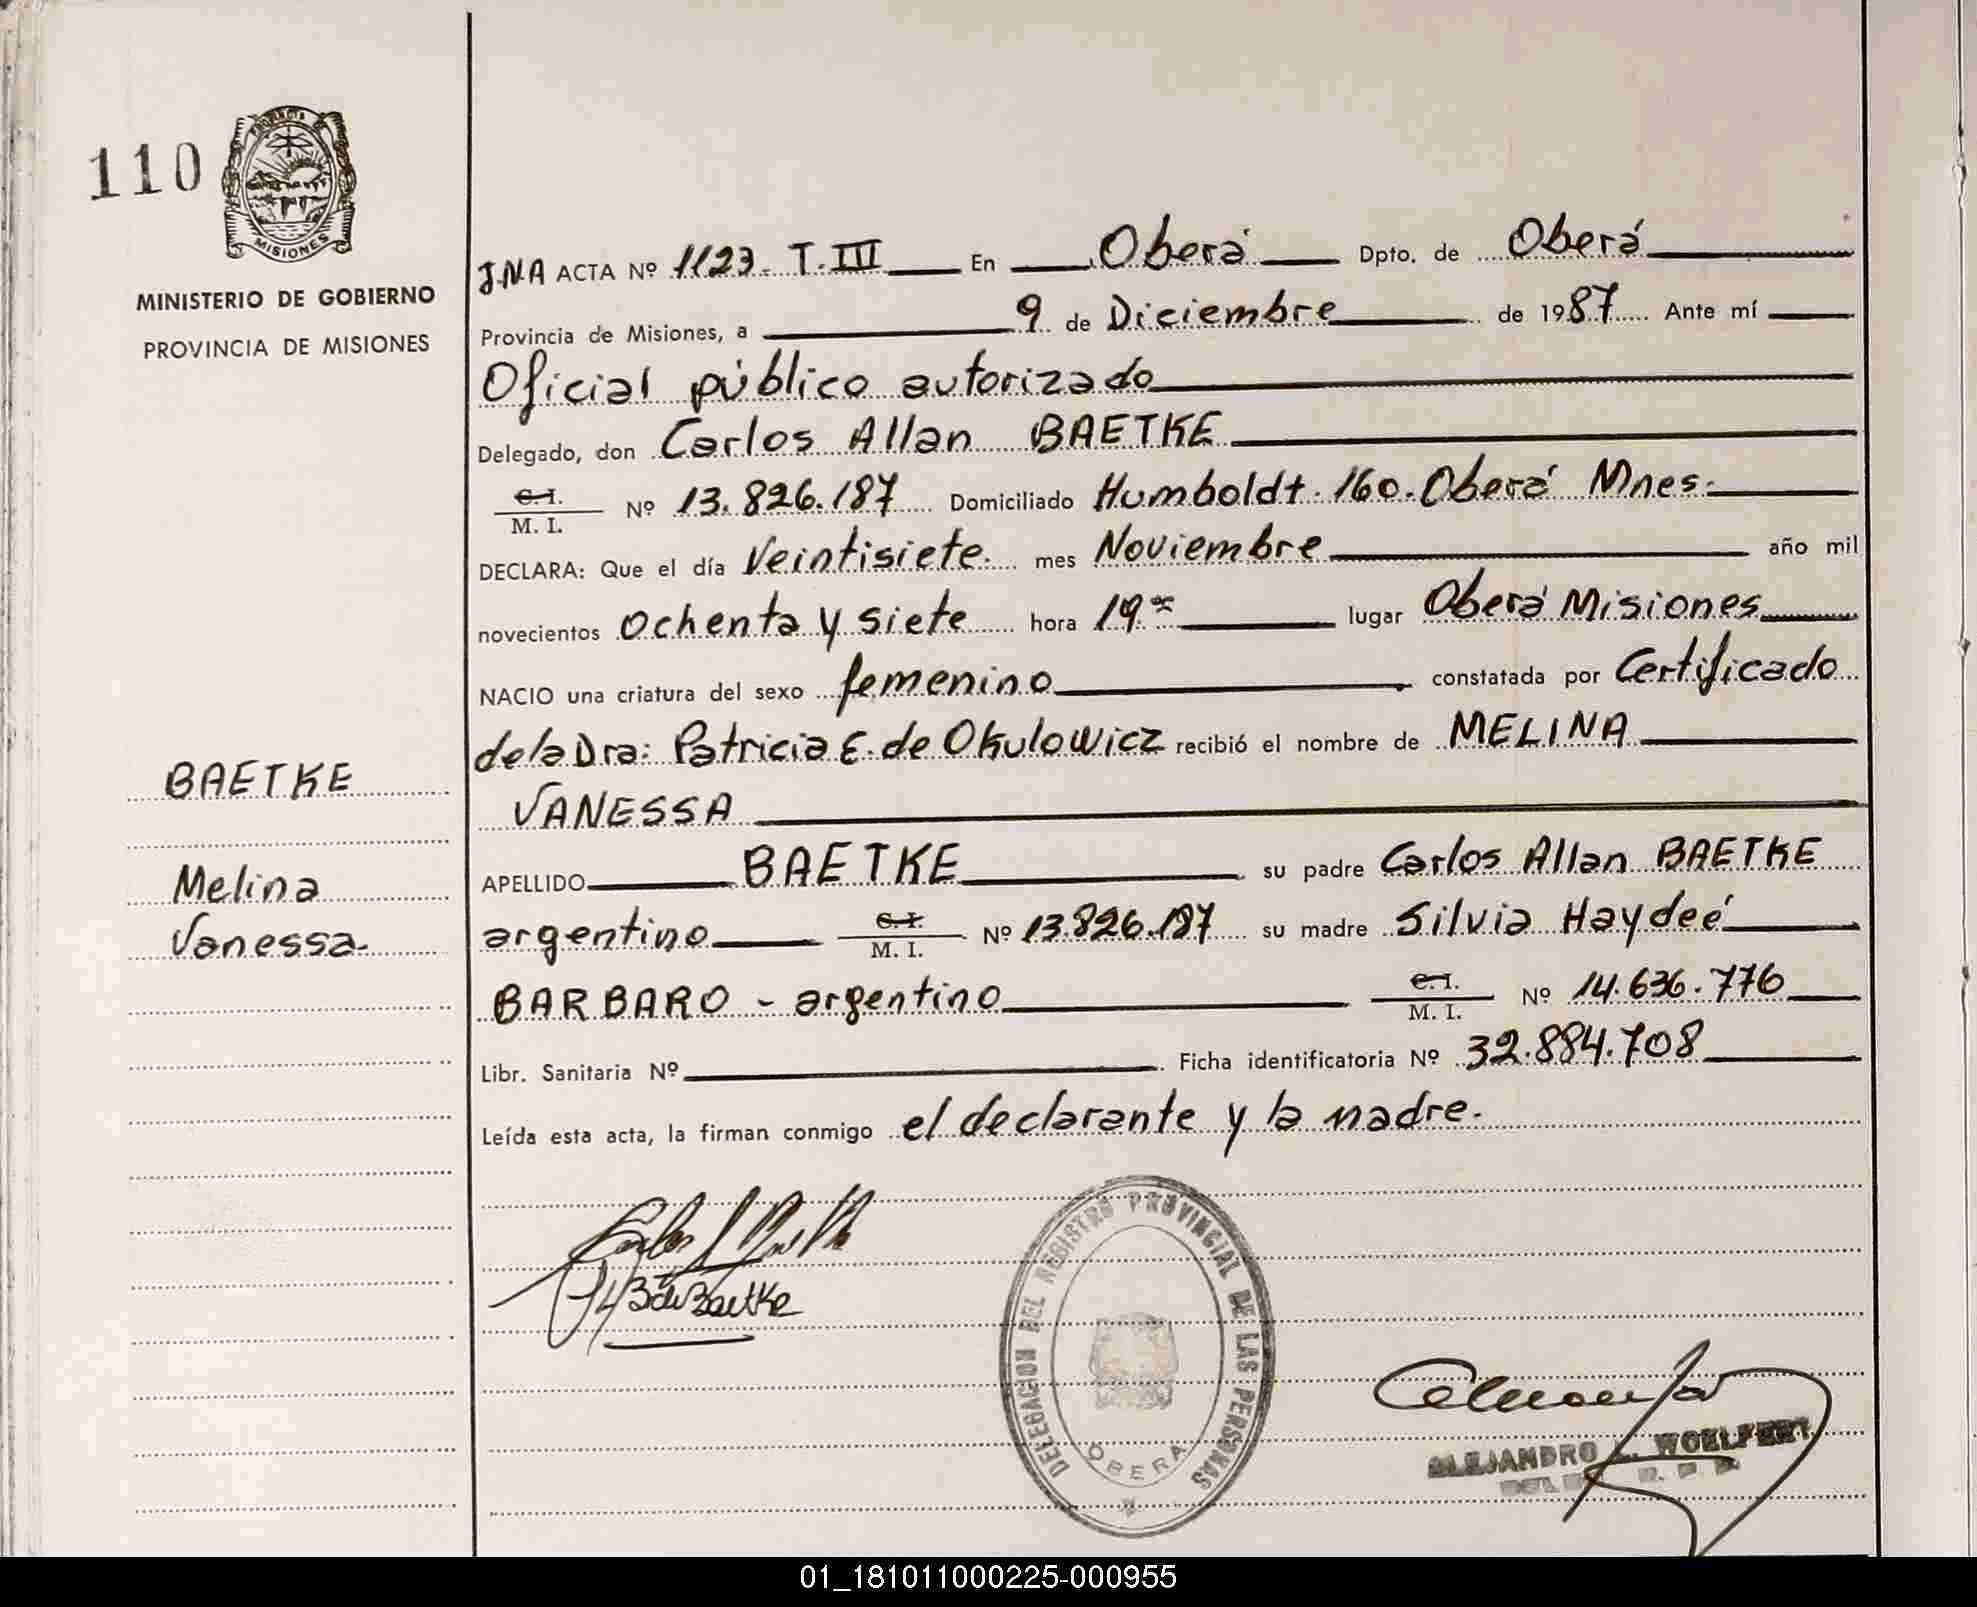 110
PROVINCIA DE
MISIONES
MINISTERIO DE GOBIERNO
PROVINCIA DE MISIONES
BAETKE
Melina
Vanessa.
J.N.A ACTA Nº 1123. T. III En Oberá Dpto. de Oberá
Provincia de Misiones, a 9 de Diciembre de 1987 Ante mí
Oficial público autorizado
Delegado, don Carlos Allan BAETKE
C.I. M. I. Nº 13.826.187 Domiciliado Humboldt. 160. Oberá Mnes.
DECLARA: Que el día Veintisiete. mes Noviembre año mil
novecientos Ochenta y siete hora 19 lugar Oberá Misiones
NACIO una criatura del sexo femenino constatada por Certificado
de la Dra: Patricia E. de Okulowicz recibió el nombre de MELINA
VANESSA
APELLIDO BAETKE su padre Carlos Allan BAETKE
argentino C.I. M. I. Nº 13.826.187 su madre Silvia Haydeé
BARBARO - argentino C.I. M. I. Nº 14.636.776
Libr. Sanitaria Nº Ficha identificatoria Nº 32.884.708
Leída esta acta, la firman conmigo el declarante y la madre.
DELEGACION DEL REGISTRO PROVINCIAL DE LAS PERSONAS
OBERA
ALEJANDRO WOELFERT
01_181011000225-000955